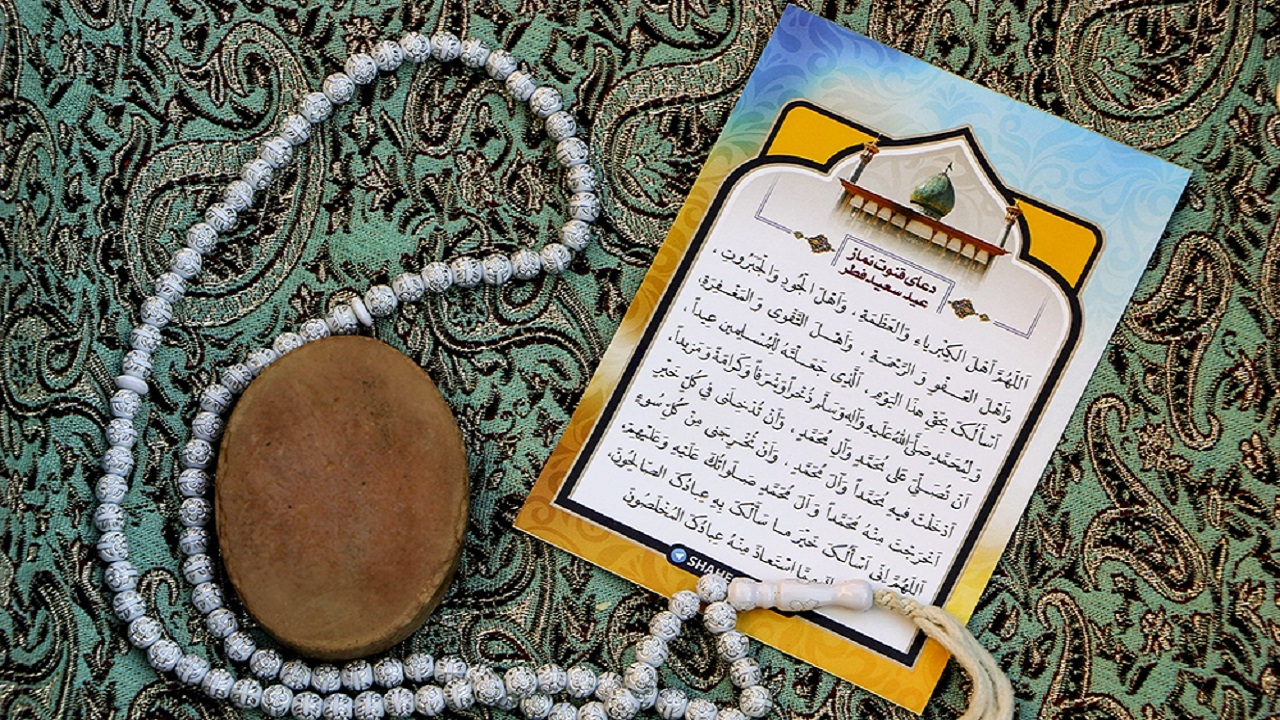 دعای قنوت نماز
عید سعید فطر
اَللّهُمَّ اَهْلَ الْكِبْرِیاءِ وَالْعَظَمَةِ ، وَاَهْلَ الْجُودِ وَالْجَبَرُوتِ ،
وَاَهْلَ الْعَفْوِ وَ الرَّحْمَةِ ، وَاَهْلَ التَّقْوى وَالْمَغْفِرَةِ،
اَسْأَلُكَ بِحَقِّ هذَا الْیَوْمِ، اَلَّذى جَعَلْتَهُ لِلْمُسْلِمینَ عیداً ،
وَ لِمُحَمَّدٍ صَلَّى اللهُ عَلَیهِ وَآلِهِ وَسَلَّم ذُخْراً وَ شَرَفاً وَ كَرامَةً وَ مَزیداً،
اَنْ تُصَلِّىَ عَلى مُحَمَّدٍ وَآلِ مُحَمَّدٍ ، وَاَنْ تُدْخِلَنى فى كُلِّ خَیْرٍ
اَدْخَلْتَ فیهِ مُحَمَّداً وَآلَ مُحَمَّدٍ ، وَاَنْ تُخْرِجَنى مِنْ كُلِّ سُوءٍ
اَخْرَجْتَ مِنْهُ مُحَمَّداً وَ آلَ مُحَمَّدٍ صَلَواتُكَ عَلَیْهِ وَعَلَیْهِمْ،
اَللّهُمَّ اِنّى اَسْأَلُكَ خَیْرَ مـا سَأَلَكَ بِهِ عِبادُكَ الصّالِحُونَ،
اسْتَعاذَ مِنْهُ عِبادُكَ الْمُخْلَصُونَ
SHAHE